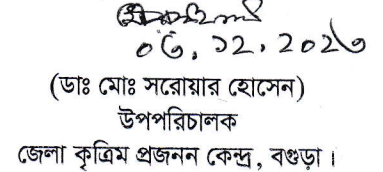 ০৫.১২.২০২৩
(ডাঃ মোঃ সরোয়ার হোসেন)
উপপরিচালক
জেলা কৃত্রিম প্রজনন কেন্দ্র, বগুড়া।